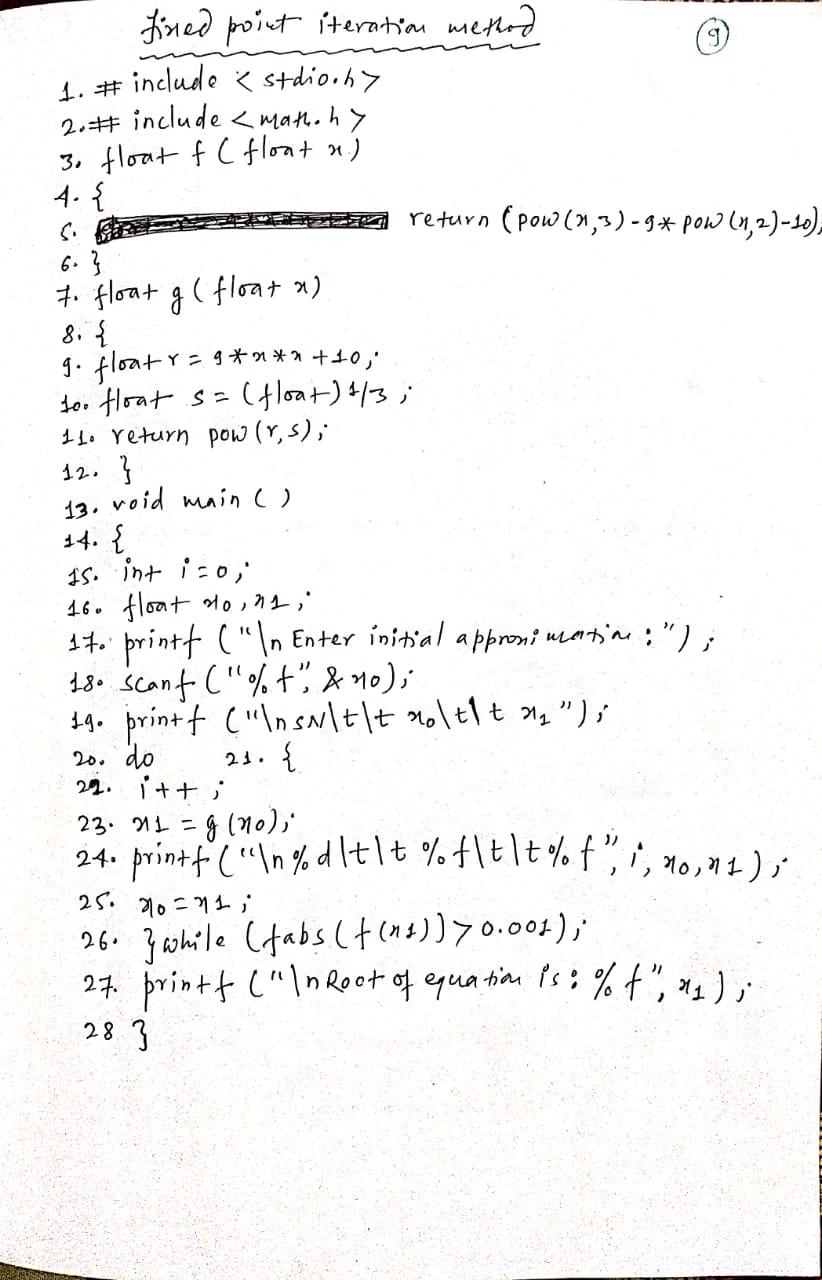 fixed point iteration method
9
1. # include < stdio.h >
2. # include < math.h >
3. float f ( float x )
4. {
5. return (pow(x,3)-9*pow(x,2)-10);
6. }
7. float g ( float x)
8. {
9. float r = 9*x*x+10;
10. float s = (float) 1/3 ;
11. return pow (r,s);
12. }
13. void main ( )
14. {
15. int i=0;
16. float x0, x1;
17. printf ("\n Enter initial approximation : ") ;
18. scanf ("%f", & x0);
19. printf ("\n SN\t\t x0\t\t x1 ") ;
20. do 21. {
22. i++ ;
23. x1 = g (x0);
24. printf ("\n %d \t\t %f\t\t %f ", i, x0, x1 ) ;
25. x0 = x1 ;
26. } while (fabs(f(x1))>0.001);
27. printf ("\n Root of equation is : %f", x1 ) ;
28 }